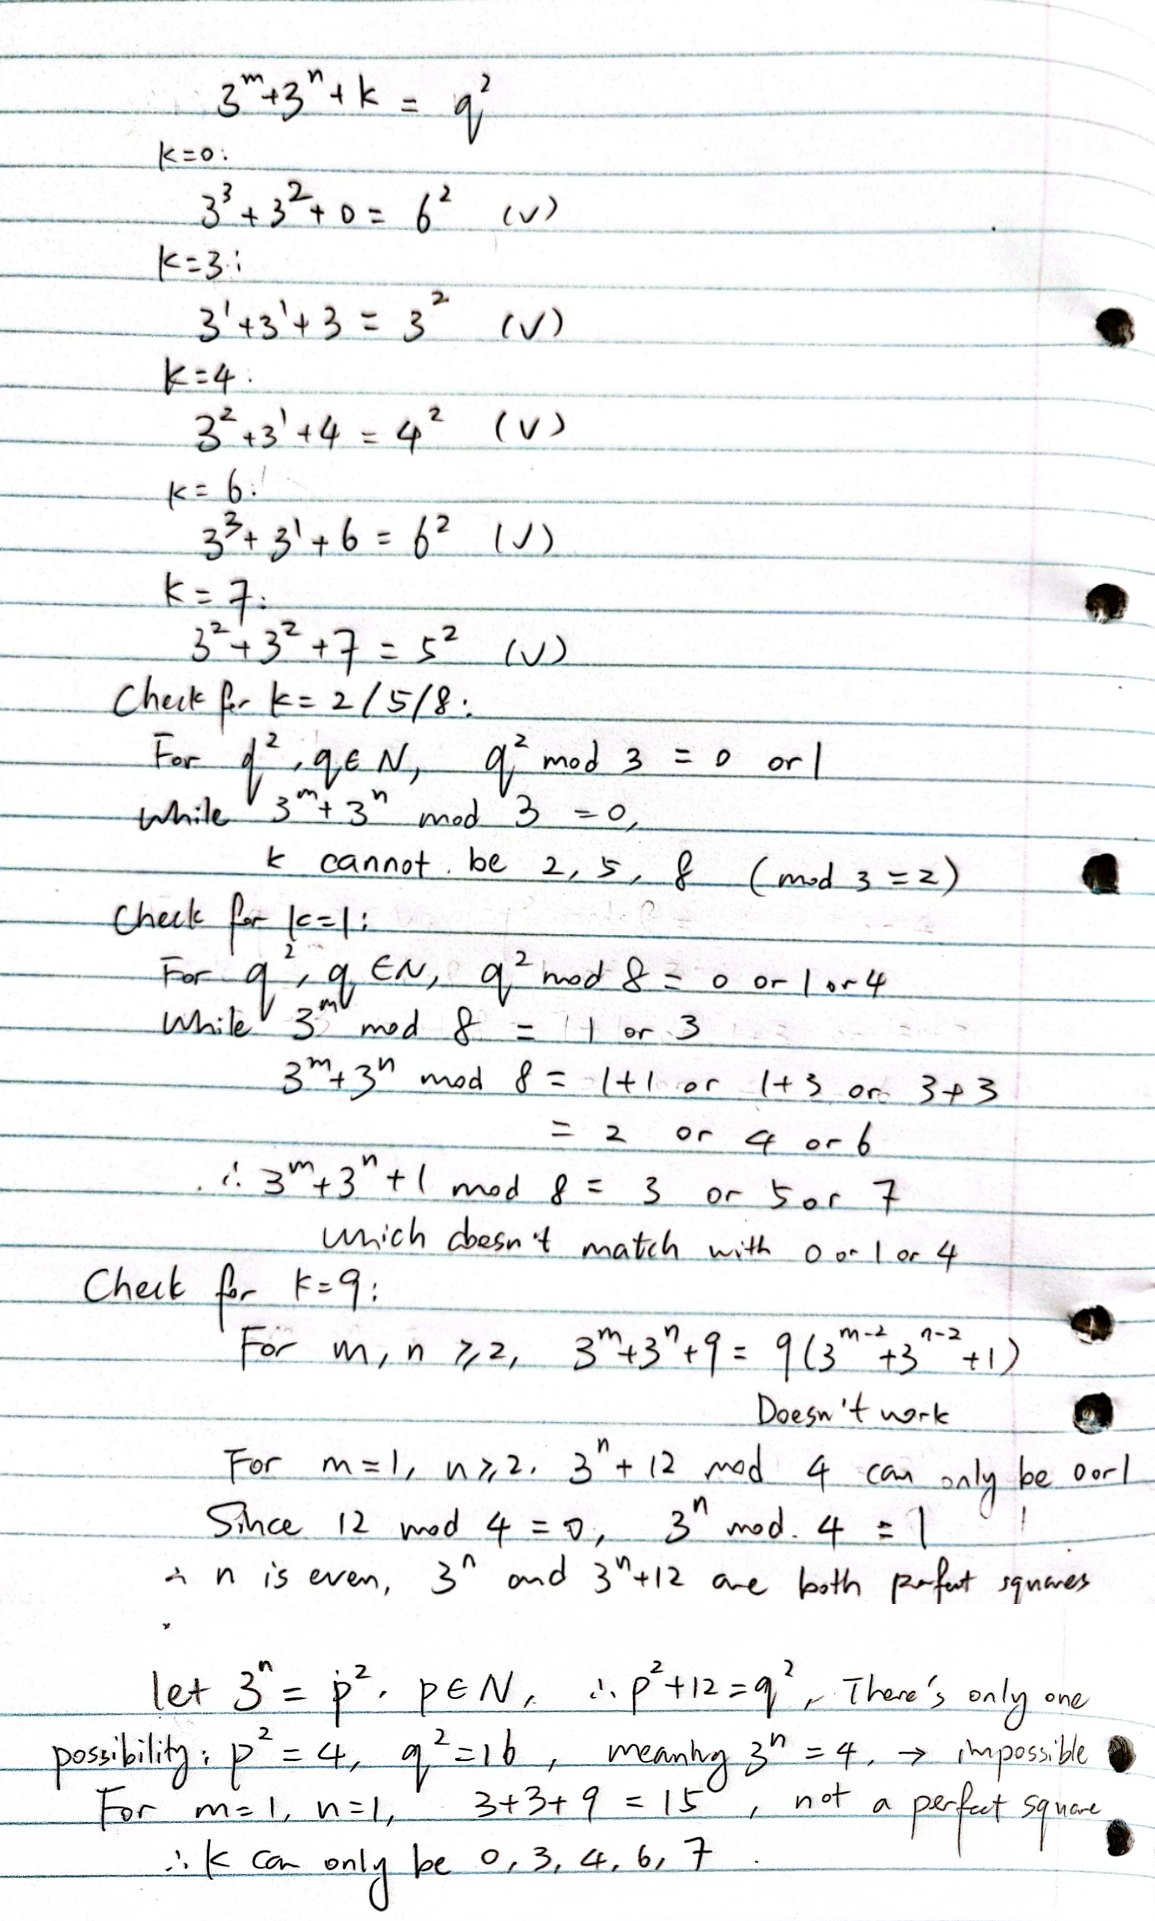 3^m+3^n+k = q^2
k=0:
3^3+3^2+0=6^2 (√)
k=3:
3^1+3^1+3=3^2 (√)
k=4:
3^2+3^1+4=4^2 (√)
k=6:
3^3+3^1+6=6^2 (√)
k=7:
3^2+3^2+7=5^2 (√)
Check for k=2/5/8:
For q^2, q∈N, q^2 mod 3 = 0 or 1
While 3^m+3^n mod 3 =0,
k cannot be 2, 5, 8 (mod 3 =2)
Check for k=1:
For q^2, q∈N, q^2 mod 8 = 0 or 1 or 4
While 3^m mod 8 = 1 or 3
3^m+3^n mod 8 = 1+1 or 1+3 or 3+3
= 2 or 4 or 6
∴ 3^m+3^n+1 mod 8 = 3 or 5 or 7
which doesn't match with 0 or 1 or 4
Check for k=9:
For m, n ≥2, 3^m+3^n+9 = 9(3^{m-2}+3^{n-2}+1)
Doesn't work
For m=1, n≥2. 3^n+12 mod 4 can only be 0 or 1
Since 12 mod 4 = 0, 3^n mod. 4 = 1
∴ n is even, 3^n and 3^n+12 are both perfect squares
let 3^n = p^2, p∈N, ∴ p^2+12=q^2, There's only one
possibility: p^2=4, q^2=16, meaning 3^n=4, → impossible
For m=1, n=1, 3+3+9=15, not a perfect square
∴ k can only be 0, 3, 4, 6, 7.